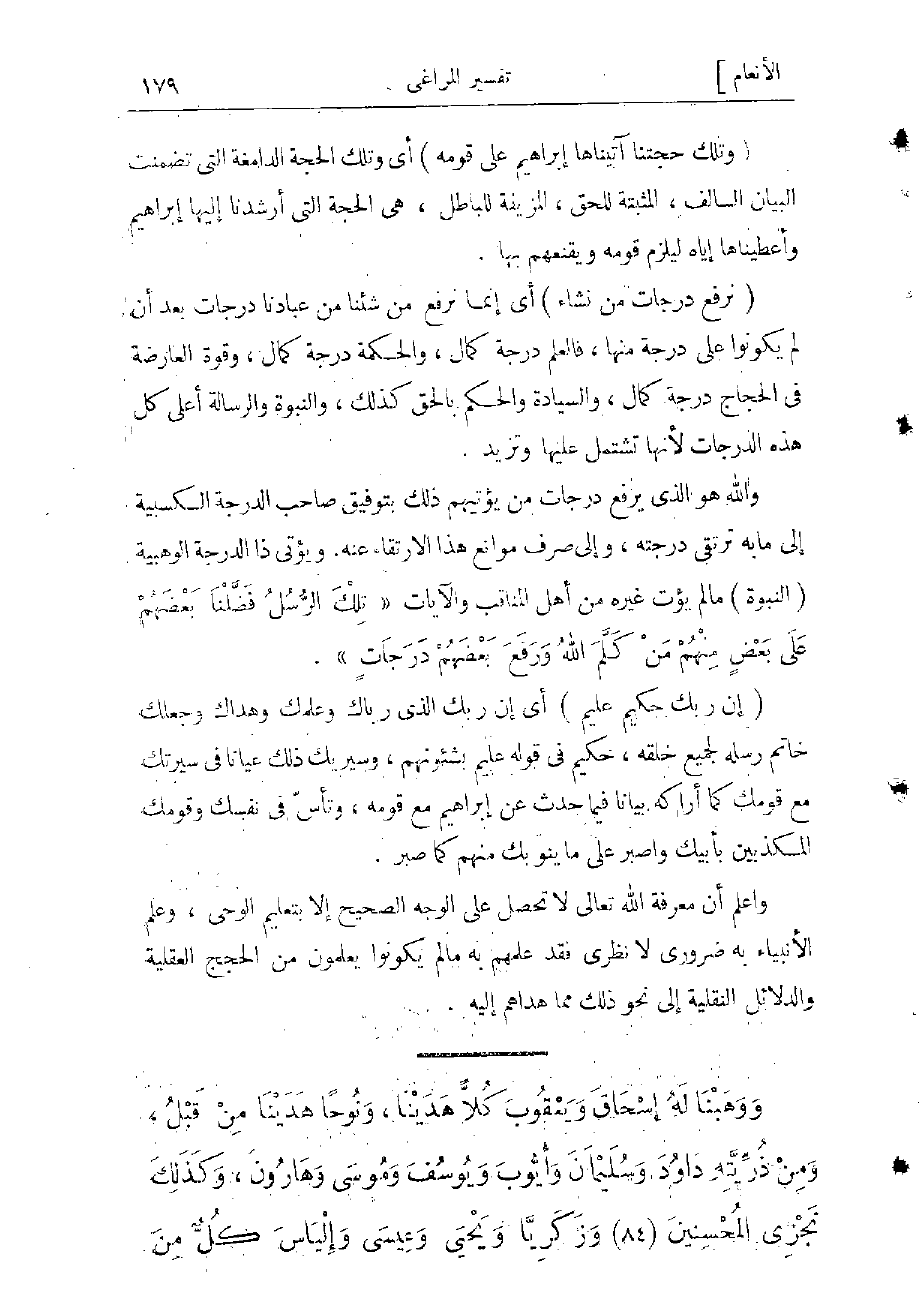 الأنعام ]
تفسير المراغى
١٧٩
( وتلك حجتنا آتيناها إبراهيم على قومه ) أى وتلك الحجة الدامغة التى تضمنت
البيان السالف ، المثبتة للحق ، المزيفة للباطل ، هى الحجة التى أرشدنا إليها إبراهيم
وأعطيناها إياه ليلزم قومه ويقنعهم بها .
( نرفع درجات من نشاء ) أى إنما نرفع من شئنا من عبادنا درجات بعد أن
لم يكونوا على درجة منها ، فالعلم درجة كمال ، والحكمة درجة كمال ، وقوة العارضة
فى الحجاج درجة كمال ، والسيادة والحكم بالحق كذلك ، والنبوة والرسالة أعلى كل
هذه الدرجات لأنها تشتمل عليها وتزيد .
والله هو الذى يرفع درجات من يؤتيهم ذلك بتوفيق صاحب الدرجة الكسبية
إلى مابه ترتقى درجته ، وإلى صرف موانع هذا الارتقاء عنه. ويؤتى ذا الدرجة الوهبية
( النبوة ) مالم يؤت غيره من أهل المناقب والآيات « تِلْكَ الرُّسُلُ فَضَّلْنَا بَعْضَهُمْ
عَلَى بَعْضٍ مِنْهُمْ مَنْ كَلَّمَ اللهُ وَرَفَعَ بَعْضَهُمْ دَرَجَاتٍ » .
( إن ربك حكيم عليم ) أى إن ربك الذى رباك وعلمك وهداك وجعلك
خاتم رسله لجميع خلقه ، حكيم فى قوله عليم بشئونهم ، وسيريك ذلك عيانا فى سيرتك
مع قومك كما أراكه بيانا فيما حدث عن إبراهيم مع قومه ، وتأسّ فى نفسك وقومك
المكذبين بأبيك واصبر على ما ينوبك منهم كما صبر .
واعلم أن معرفة الله تعالى لا تحصل على الوجه الصحيح إلا بتعليم الوحى ، وعلم
الأنبياء به ضرورى لا نظرى فقد علمهم به مالم يكونوا يعلمون من الحجج العقلية
والدلائل النقلية إلى نحو ذلك مما هداهم إليه .
وَوَهَبْنَا لَهُ إِسْحَاقَ وَيَعْقُوبَ كُلاًّ هَدَيْنَا ، وَنُوحًا هَدَيْنَا مِنْ قَبْلُ ،
وَمِنْ ذُرِّيَّتِهِ دَاوُدَ وَسُلَيْمَانَ وَأَيُّوبَ وَيُوسُفَ وَمُوسَى وَهَارُونَ ، وَكَذَلِكَ
نَجْزِى الْمُحْسِنِينَ (٨٤) وَزَكَرِيَّا وَيَحْيَى وَعِيسَى وَإِلْيَاسَ كُلٌّ مِنَ